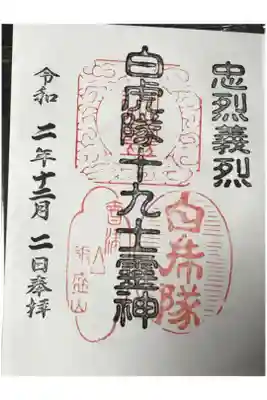 忠烈義烈
白虎隊十九士靈神
令和二年十二月二日奉拝
白虎隊
會津
飯盛山